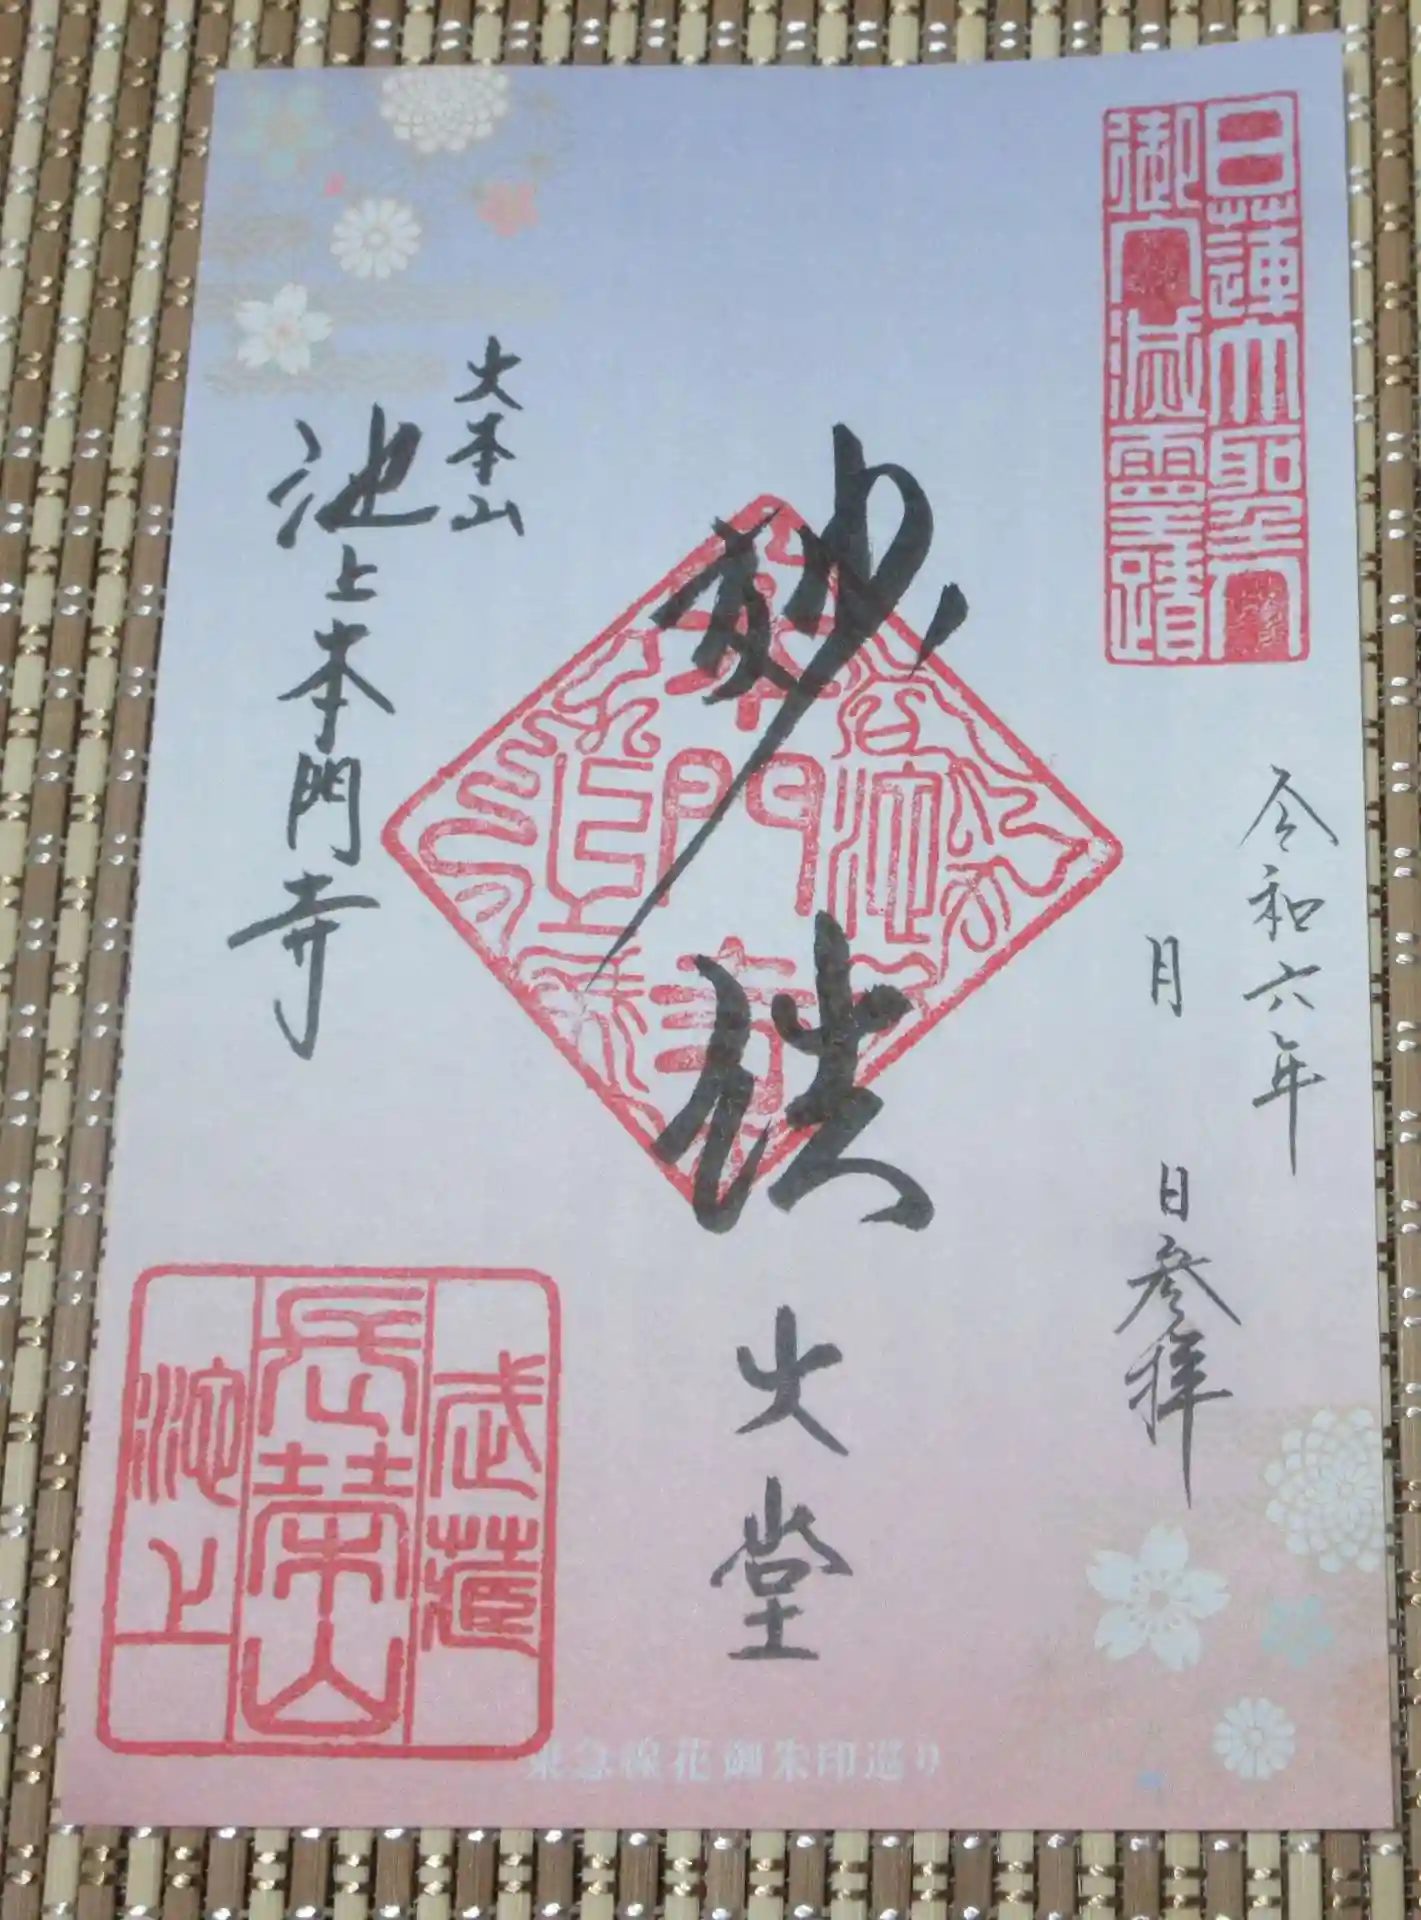 日蓮大聖人
御入滅霊蹟
令和六年
月 日参拝
妙法
大堂
大本山
池上本門寺
武蔵
長榮山
池上
東急線花御朱印巡り